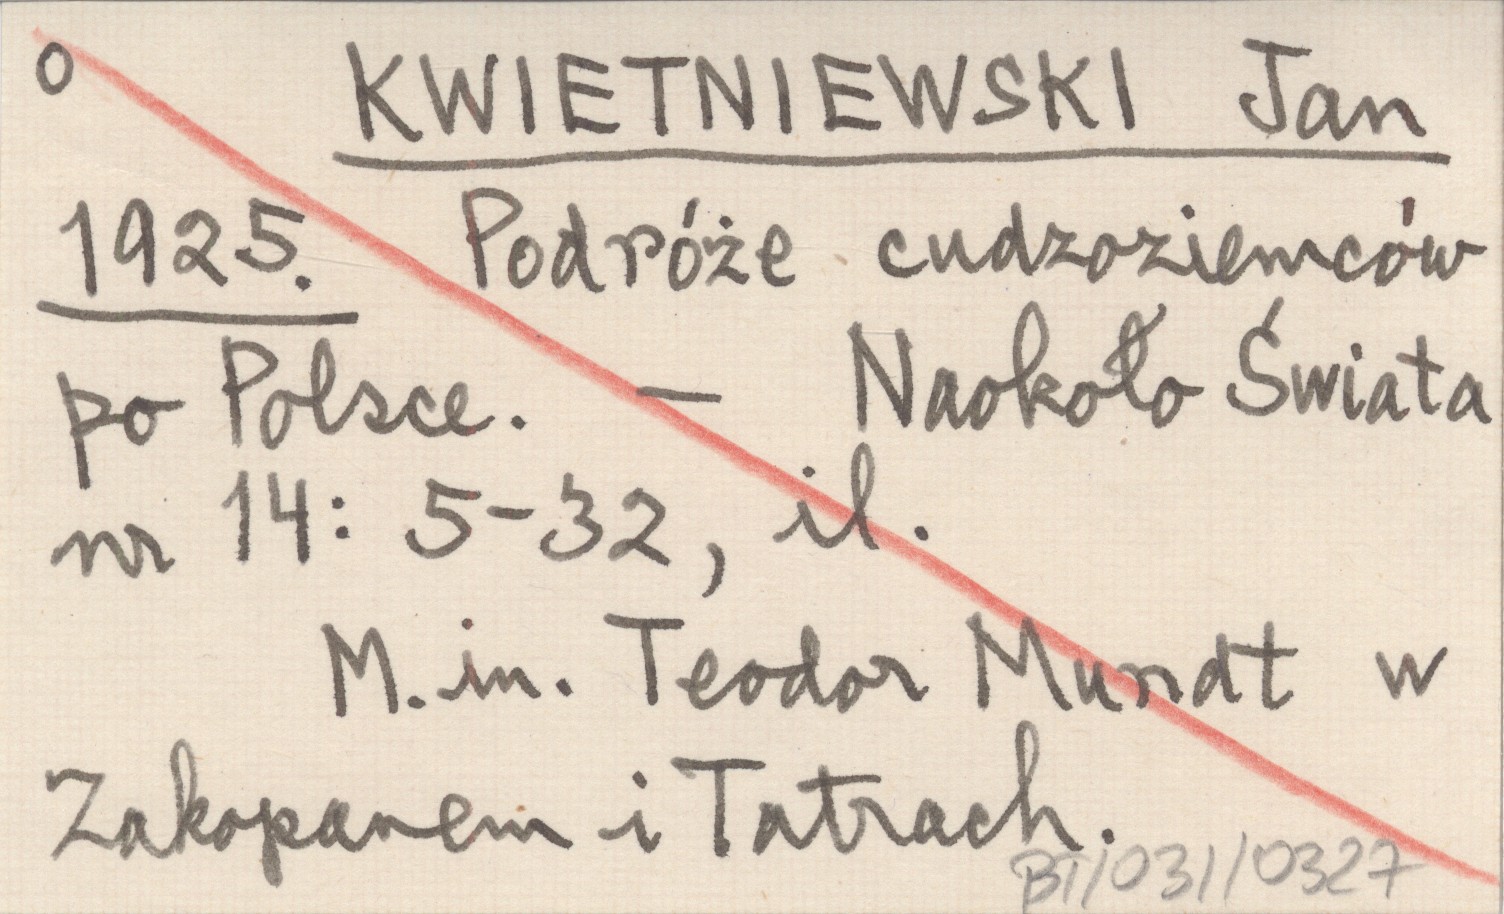 o KWIETNIEWSKI Jan
1925. Podróże cudzoziemców
po Polsce. — Naokoło Świata
nr 14: 5-32, il.
M.in. Teodor Mundt w
Zakopanem i Tatrach.
BT/031/0327